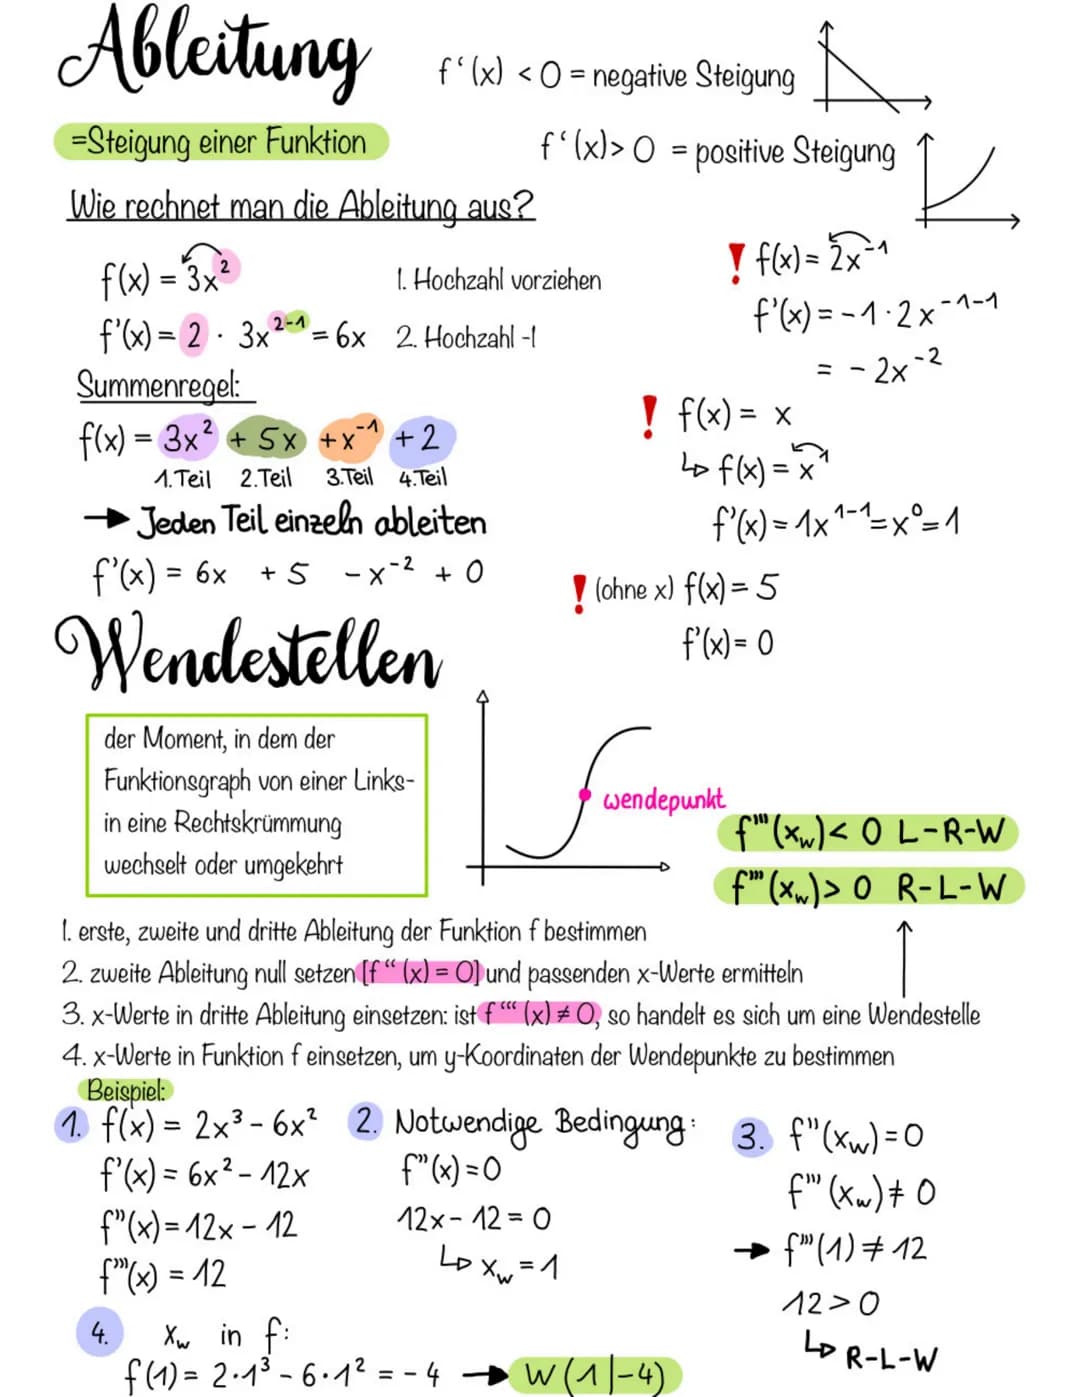 Ableitung
f‘(x) < 0 = negative Steigung
=Steigung einer Funktion
f‘(x) > 0 = positive Steigung
Wie rechnet man die Ableitung aus?
f(x) = 3x²
1. Hochzahl vorziehen
f'(x) = 2 · 3x²⁻¹ = 6x
2. Hochzahl -1
! f(x) = 2x⁻¹
f'(x) = -1 · 2x⁻¹⁻¹
= -2x⁻²
Summenregel:
f(x) = 3x² + 5x + x⁻¹ + 2
1.Teil 2.Teil 3.Teil 4.Teil
→ Jeden Teil einzeln ableiten
f'(x) = 6x + 5 - x⁻² + 0
! f(x) = x
↳ f(x) = x¹
f'(x) = 1x¹⁻¹ = x⁰ = 1
! (ohne x) f(x) = 5
f'(x) = 0
Wendestellen
der Moment, in dem der
Funktionsgraph von einer Links-
in eine Rechtskrümmung
wechselt oder umgekehrt
wendepunkt
f'''(x_w) < 0 L-R-W
f'''(x_w) > 0 R-L-W
1. erste, zweite und dritte Ableitung der Funktion f bestimmen
2. zweite Ableitung null setzen [f“(x) = 0] und passenden x-Werte ermitteln
3. x-Werte in dritte Ableitung einsetzen: ist f“‘(x) ≠ 0, so handelt es sich um eine Wendestelle
4. x-Werte in Funktion f einsetzen, um y-Koordinaten der Wendepunkte zu bestimmen
Beispiel:
1. f(x) = 2x³ - 6x²
f'(x) = 6x² - 12x
f''(x) = 12x - 12
f'''(x) = 12
2. Notwendige Bedingung:
f''(x) = 0
12x - 12 = 0
↳ x_w = 1
3. f''(x_w) = 0
f'''(x_w) ≠ 0
→ f'''(1) ≠ 12
12 > 0
↳ R-L-W
4. x_w in f:
f(1) = 2·1³ - 6·1² = -4 → W(1|-4)